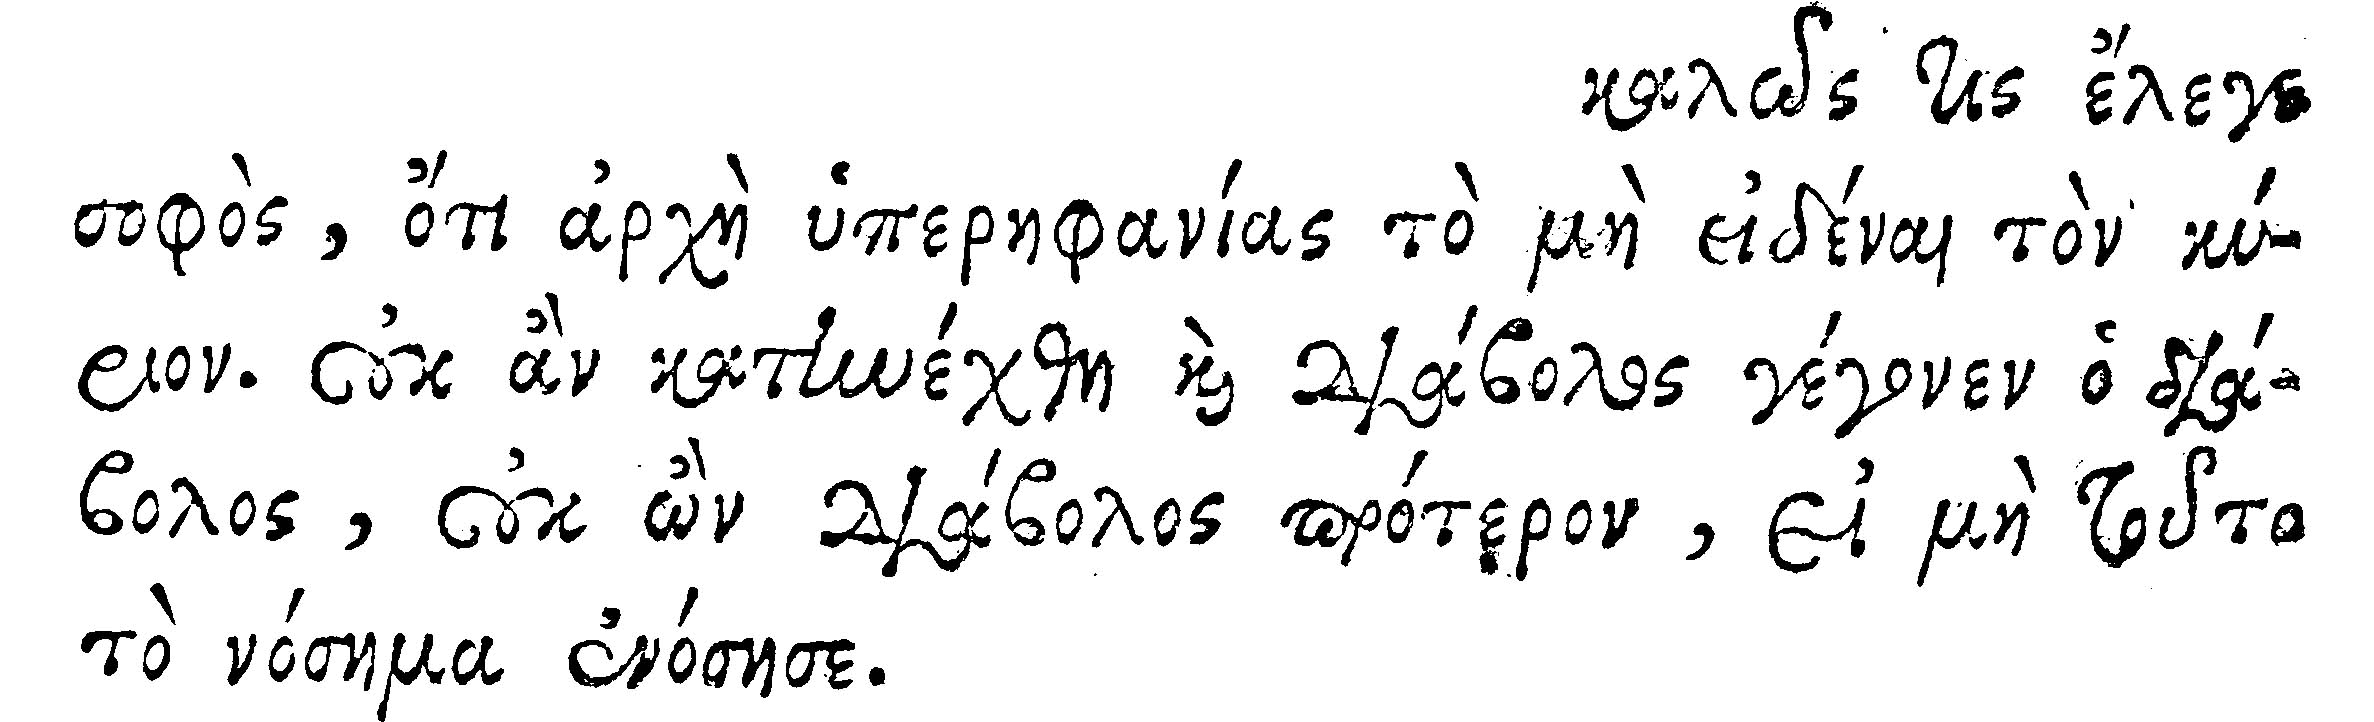 καλῶς τις ἔλεγε
σοφὸς, ὅτι ἀρχὴ ὑπερηφανίας τὸ μὴ εἰδέναι τὸν κύ-
ριον. οὐκ ἂν κατηνέχθη καὶ διάβολος γέγονεν ὁ διά-
βολος, οὐκ ὢν διάβολος πρότερον, εἰ μὴ τοῦτο
τὸ νόσημα ἐνόσησε.